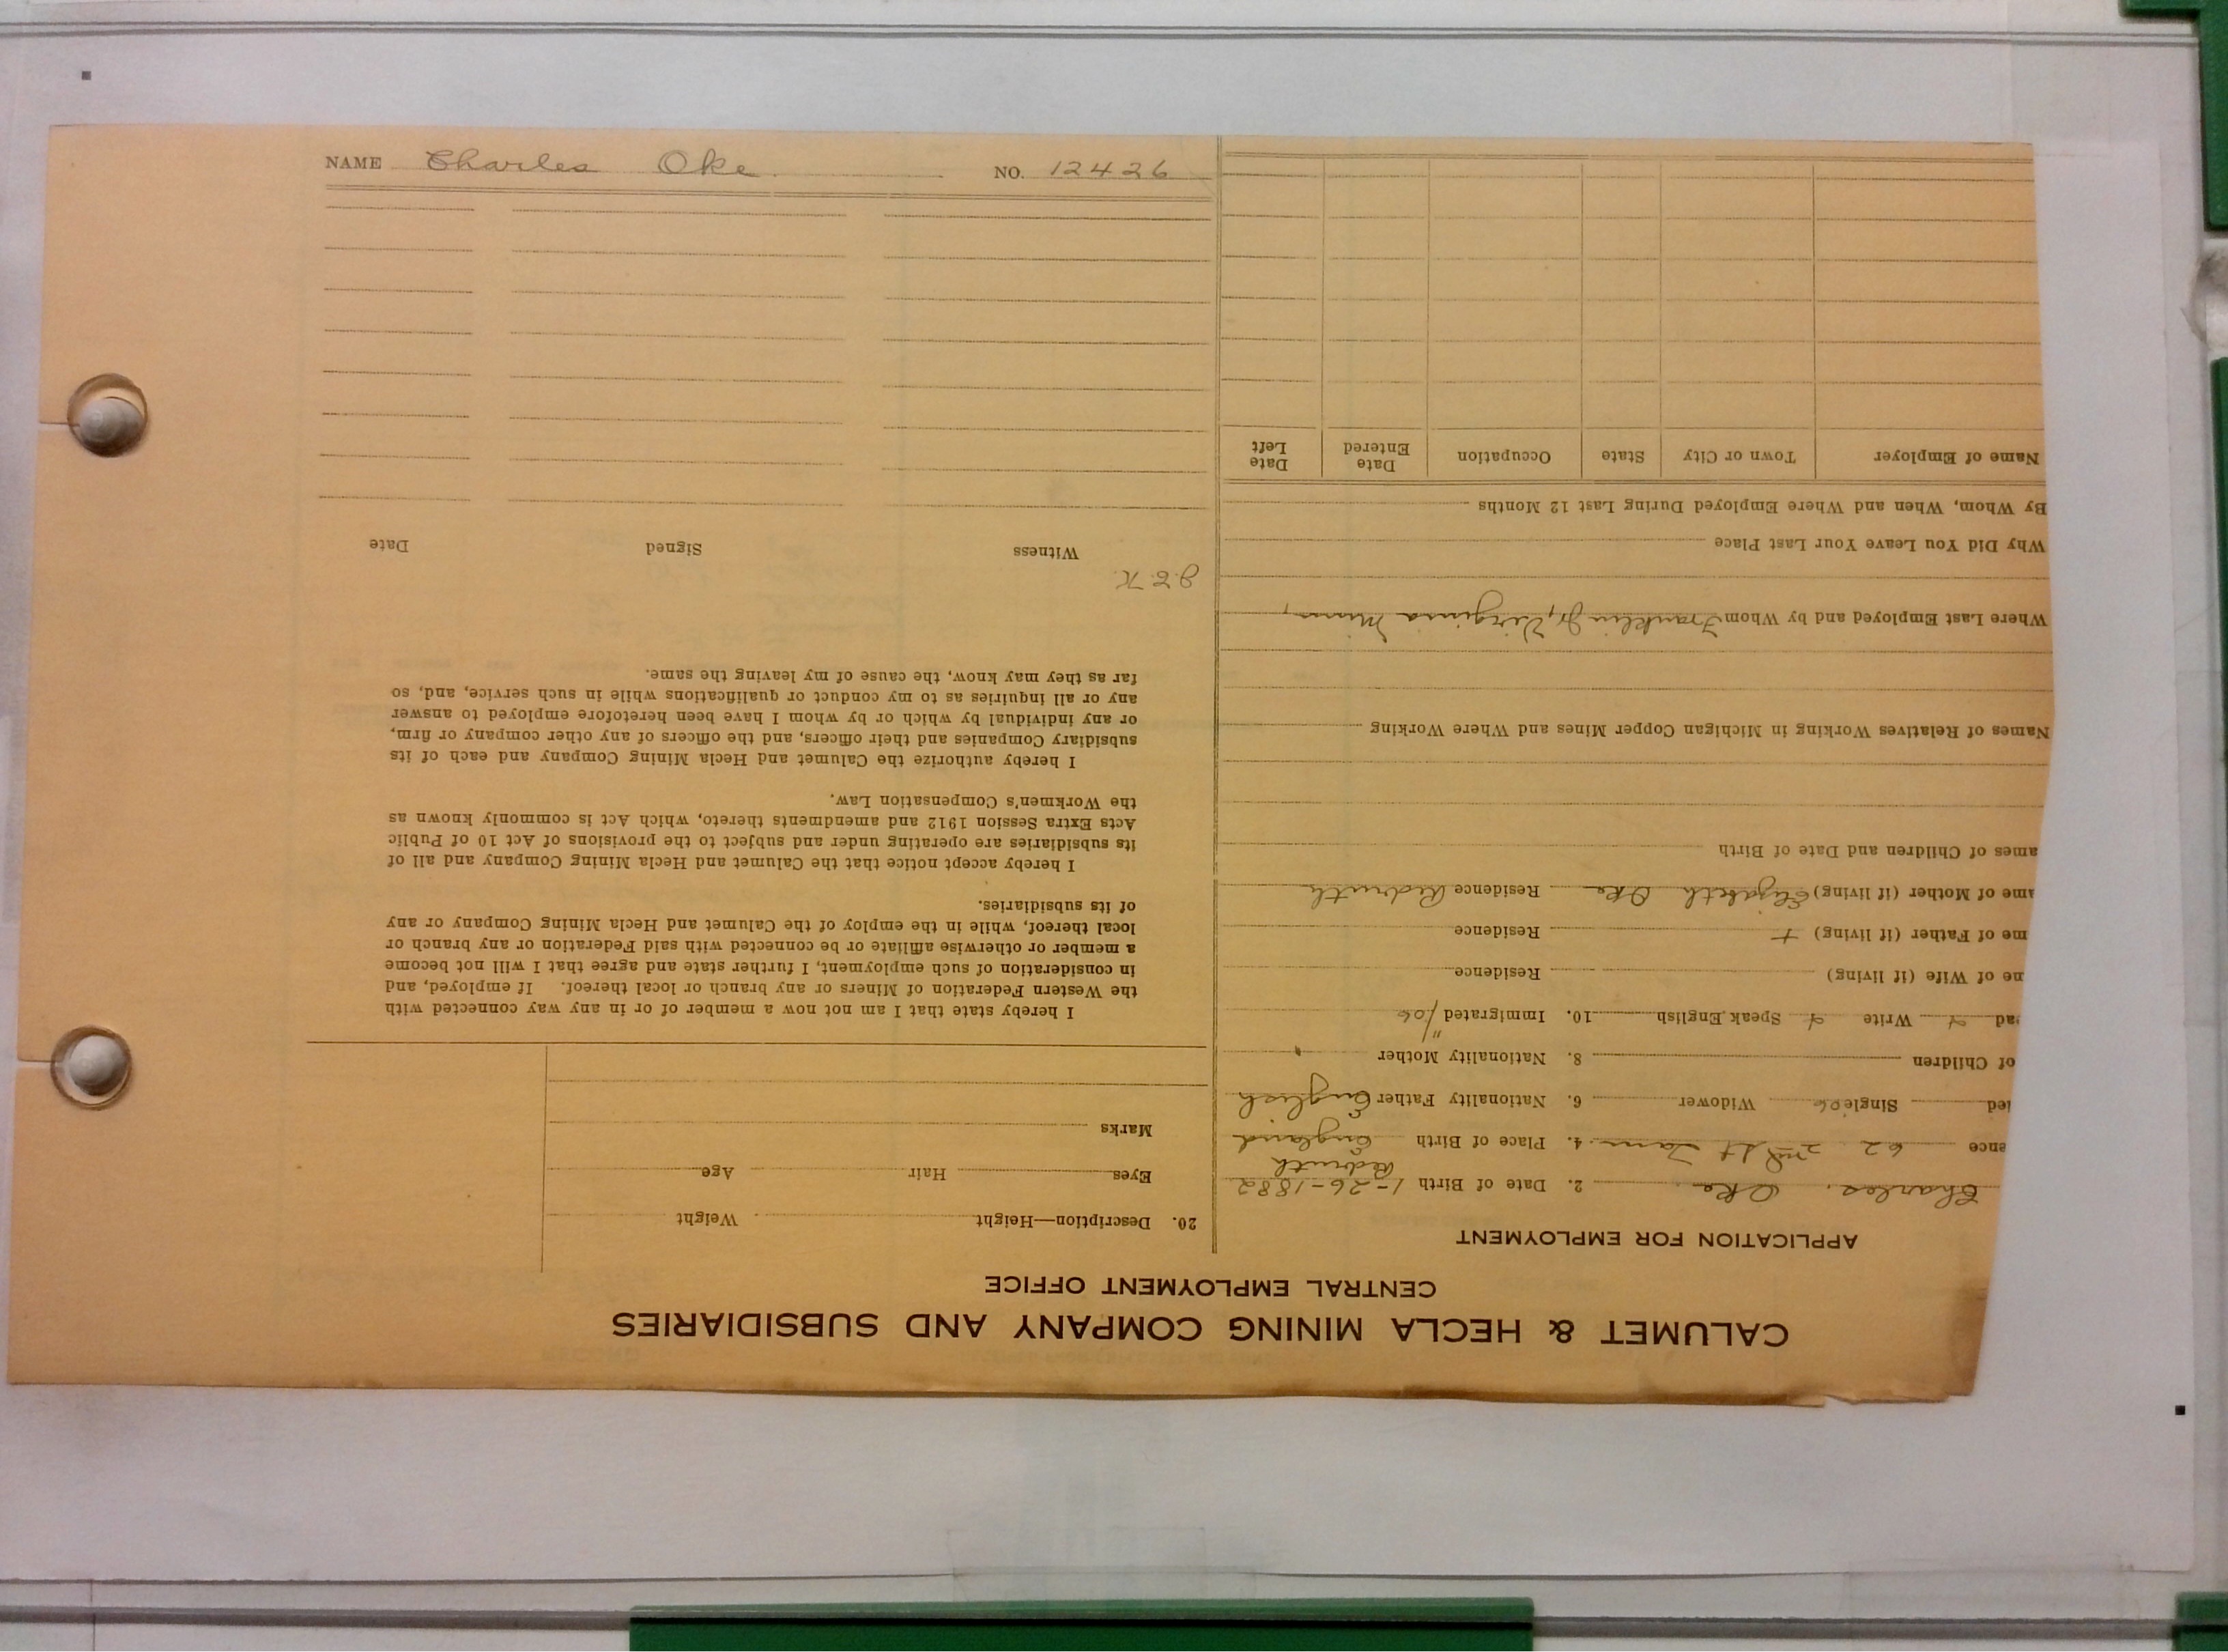 CALUMET & HECLA MINING COMPANY AND SUBSIDIARIES
CENTRAL EMPLOYMENT OFFICE
APPLICATION FOR EMPLOYMENT
Charles. Oke 2. Date of Birth 1-26-1882
Redruth
ance 62 2nd St 4. Place of Birth England
ied Single Widower 6. Nationality Father English
of Children 8. Nationality Mother "
ad Write Speak English 10. Immigrated /06
me of Wife (if living) Residence
me of Father (if living) + Residence
ame of Mother (if living) Elizabeth Oke Residence Redruth
ames of Children and Date of Birth
Names of Relatives Working in Michigan Copper Mines and Where Working
Where Last Employed and by Whom Franklin Jr, Virginia Minn,
Why Did You Leave Your Last Place
By Whom, When and Where Employed During Last 12 Months
Name of Employer Town or City State Occupation Date Entered Date Left
20. Description—Height Weight
Eyes Hair Age
Marks
I hereby state that I am not now a member of or in any way connected with
the Western Federation of Miners or any branch or local thereof. If employed, and
in consideration of such employment, I further state and agree that I will not become
a member or otherwise affiliate or be connected with said Federation or any branch or
local thereof, while in the employ of the Calumet and Hecla Mining Company or any
of its subsidiaries.
I hereby accept notice that the Calumet and Hecla Mining Company and all of
its subsidiaries are operating under and subject to the provisions of Act 10 of Public
Acts Extra Session 1912 and amendments thereto, which Act is commonly known as
the Workmen's Compensation Law.
I hereby authorize the Calumet and Hecla Mining Company and each of its
subsidiary Companies and their officers, and the officers of any other company or firm,
or any individual by which or by whom I have been heretofore employed to answer
any or all inquiries as to my conduct or qualifications while in such service, and, so
far as they may know, the cause of my leaving the same.
J.E.K.
Witness Signed Date
NAME Charles Oke NO. 12426